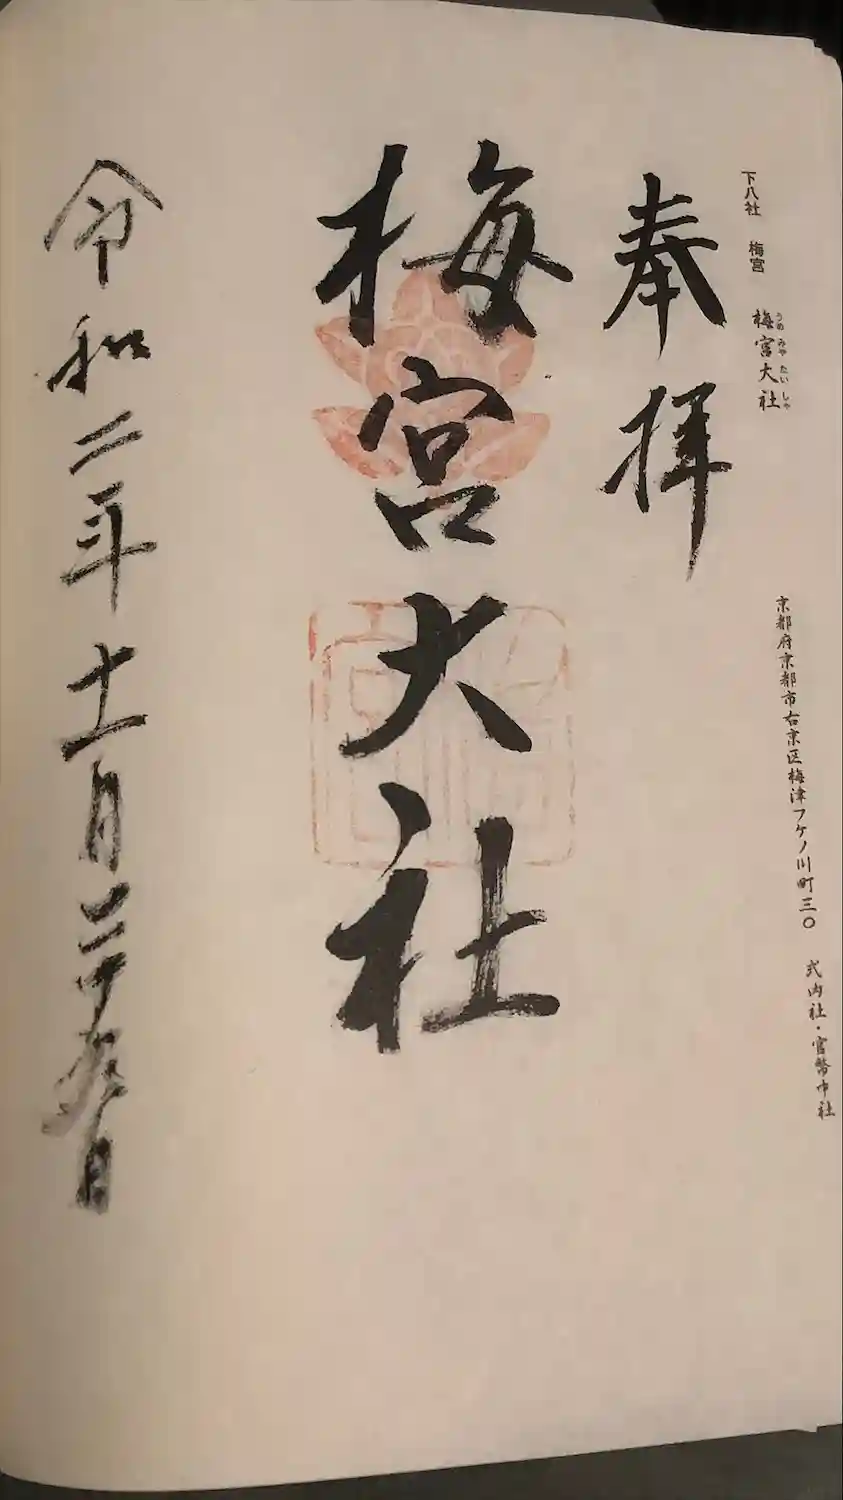 下八社　梅宮　梅宮大社　京都府京都市右京区梅津フケノ川町三〇　式内社・官幣中社
うめみやたいしゃ
奉拝
梅宮大社
令和二年十一月二十九日